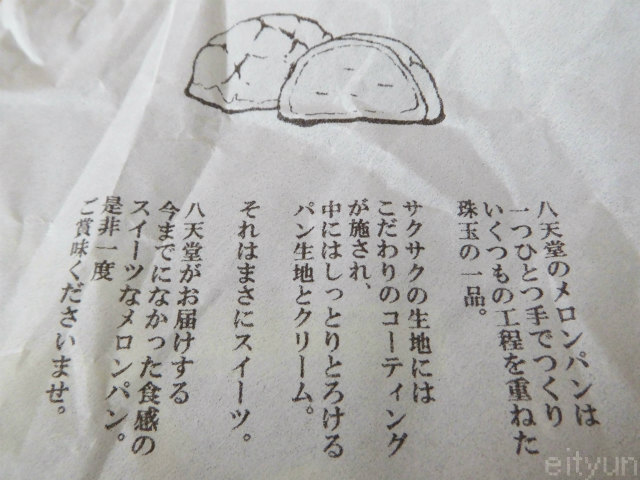 八天堂のメロンパンは
一つひとつ手でつくり
いくつもの工程を重ねた
珠玉の一品。
サクサクの生地には
こだわりのコーティング
が施され、
中にはしっとりとろける
パン生地とクリーム。
それはまさにスイーツ。
八天堂がお届けする
今までになかった食感の
スイーツなメロンパン。
是非一度
ご賞味くださいませ。
eityun